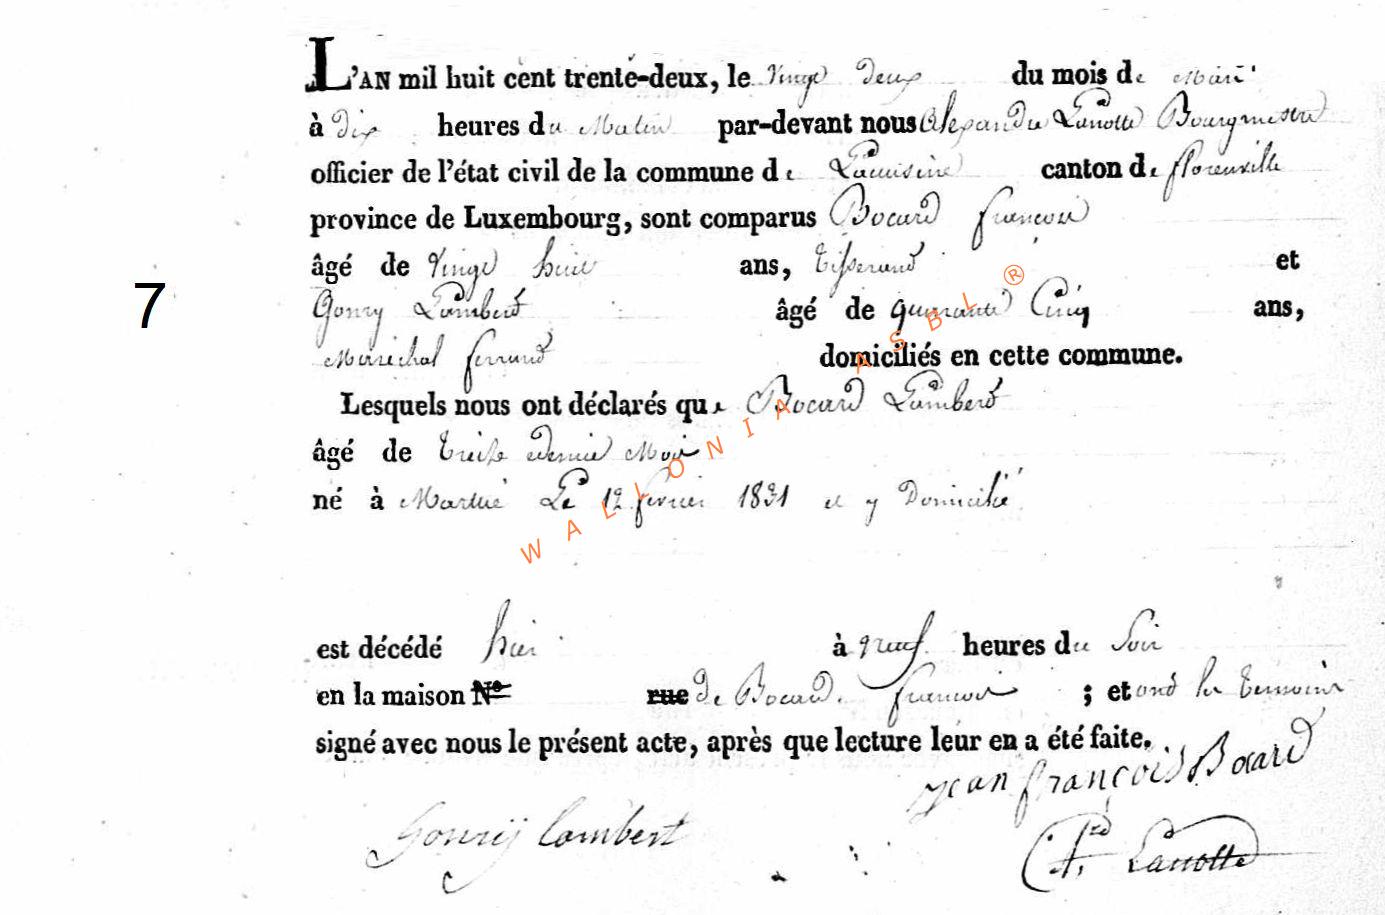 L'AN mil huit cent trente-deux, le vingt deux du mois de Mars
à dix heures du Matin par-devant nous Alexandre Lanotte Bourgmestre
officier de l'état civil de la commune de Lacuisine canton de florenville
province de Luxembourg, sont comparus Bocard francois
âgé de vingt huit ans, tisserand et
Gonry Lambert âgé de quarante Cinq ans,
Maréchal ferrand domiciliés en cette commune.
7
Lesquels nous ont déclarés que Bocard Lambert
âgé de treize demie Mois
né à Martué Le 12 fevrier 1831 et y Domicilié
WALLONIA ASBL ®
est décédé hier à neuf heures du Soir
en la maison N° rue de Bocard francois ; et ond les temoins
signé avec nous le présent acte, après que lecture leur en a été faite.
jean françois Bocard
Gonrij lambert
Lanotte